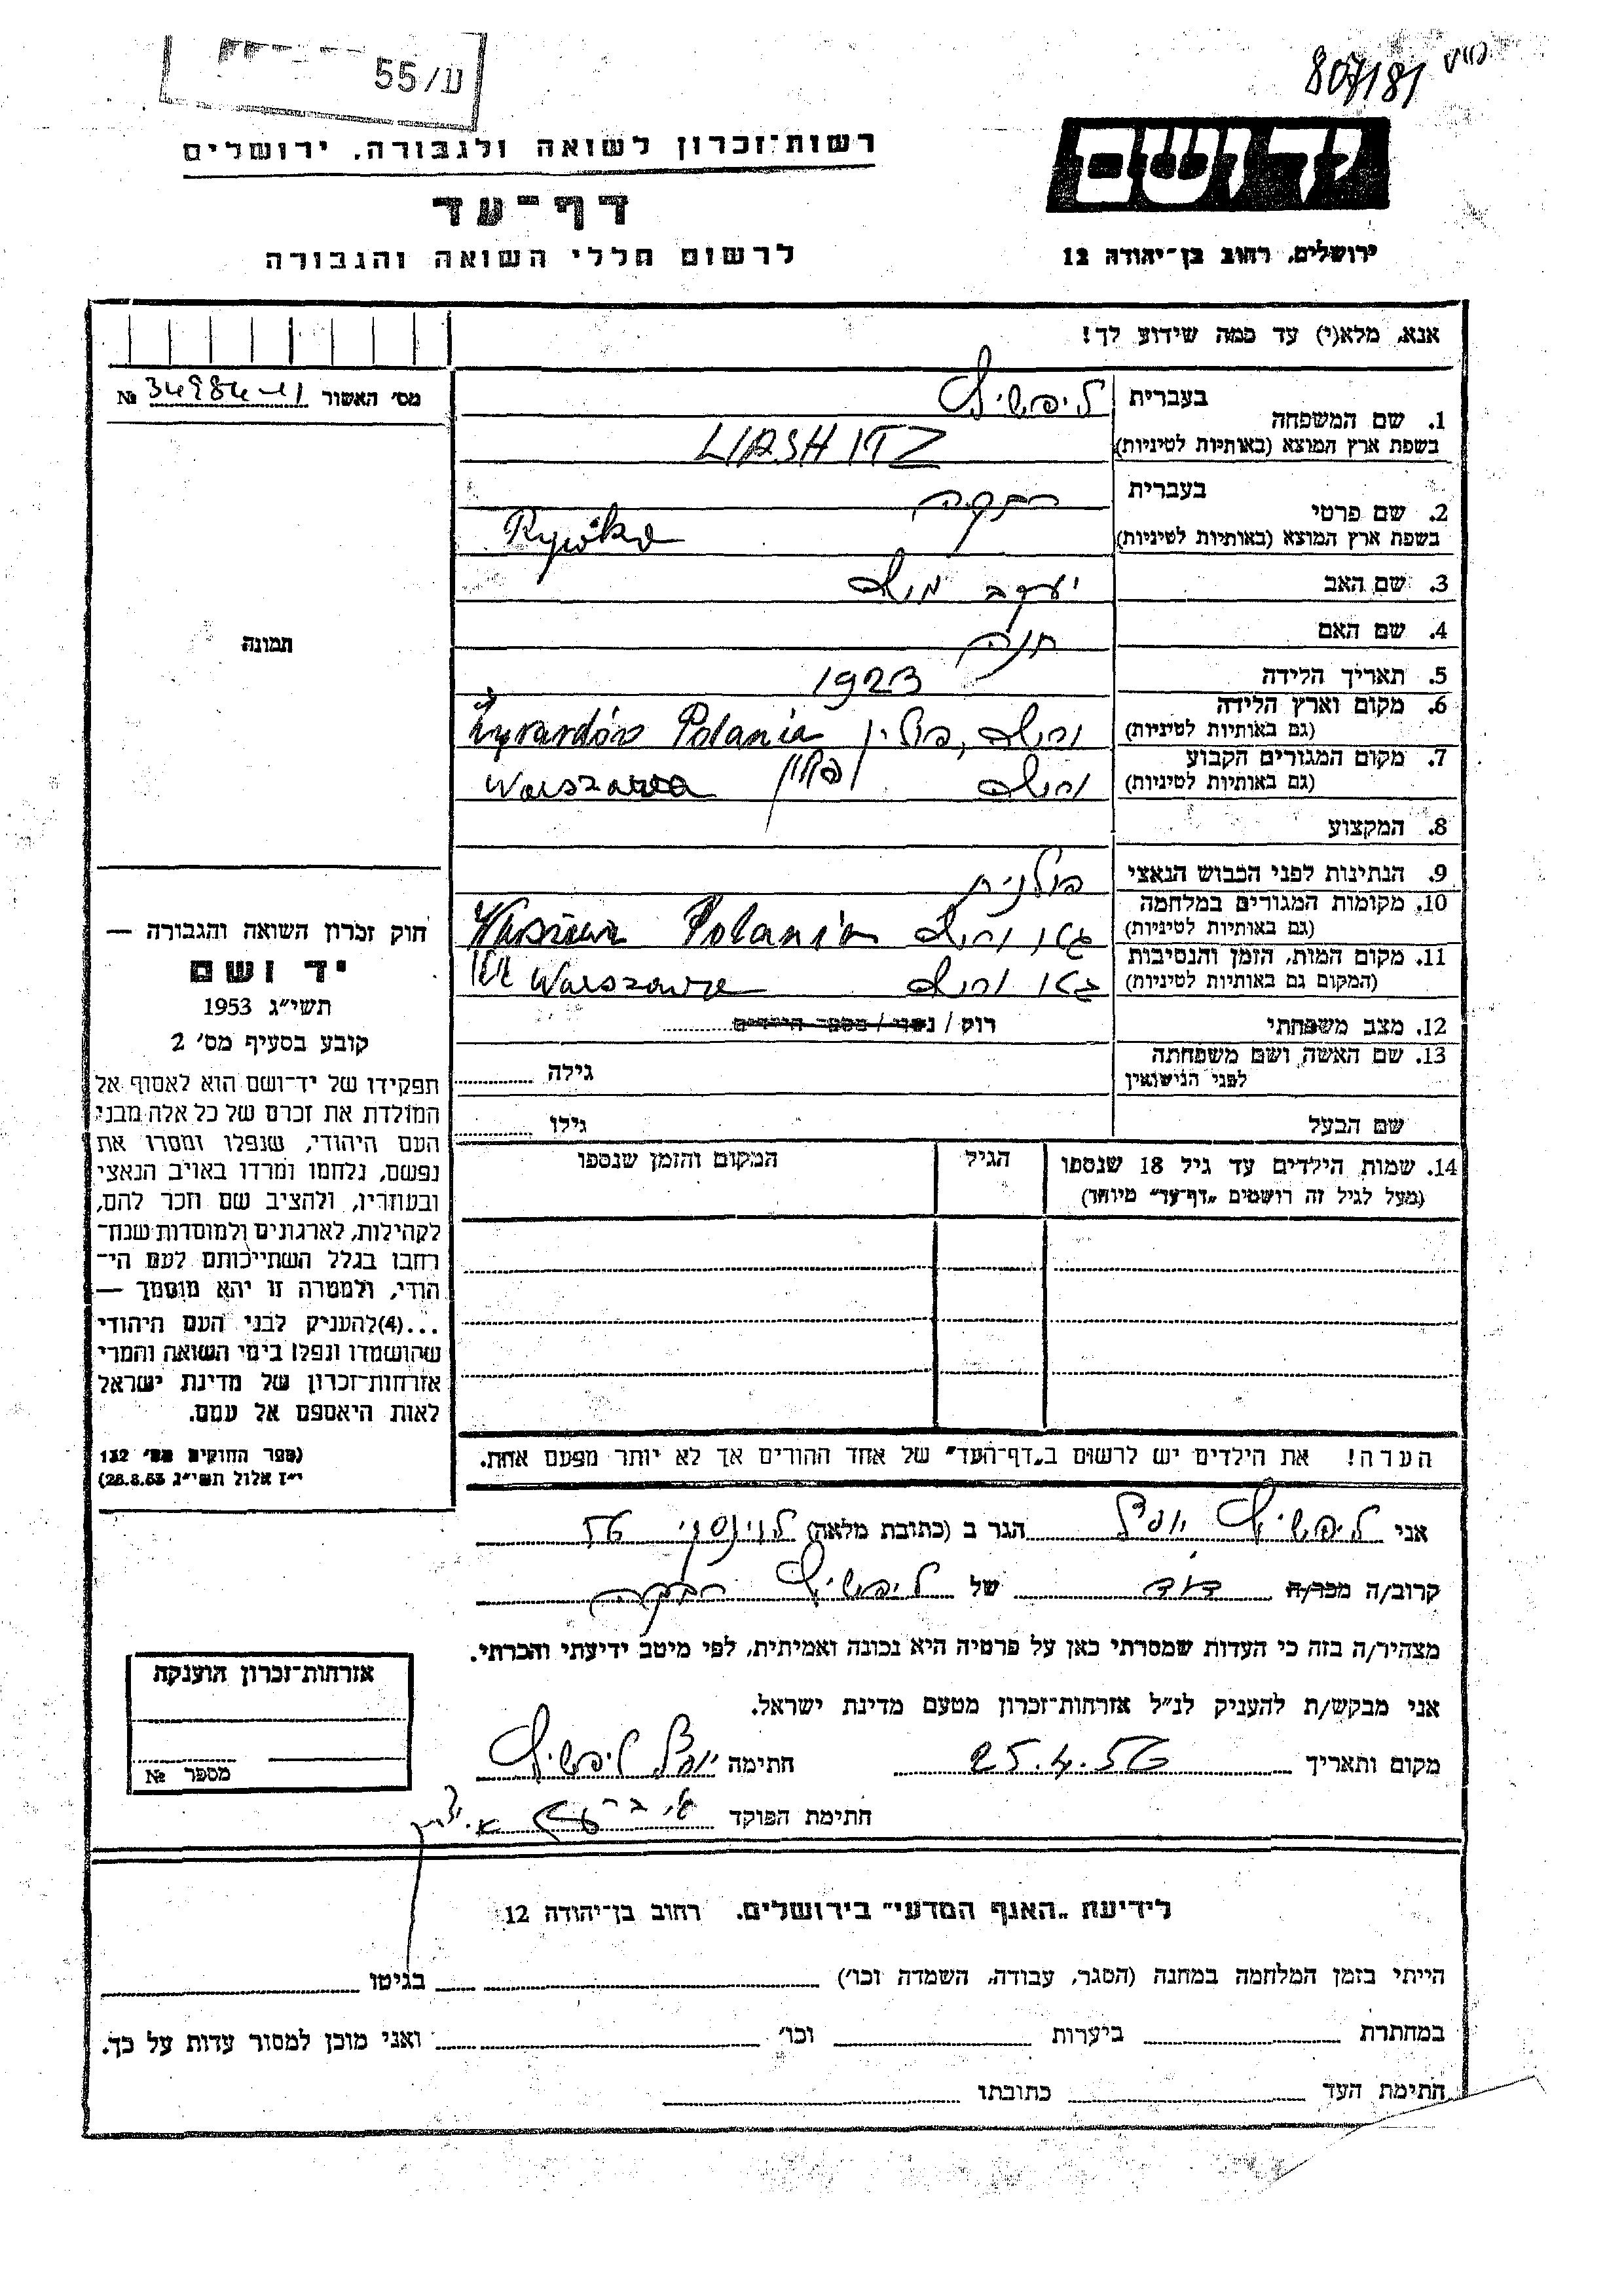 ע/55
807/81
רשות־זכרון לשואה ולגבורה, ירושלים
יד ושם
דף־עד
לרשום חללי השואה והגבורה
ירושלים, רחוב בן־יהודה 12
אנא, מלא(י) עד כמה שידוע לך!
מס' האשור № 34984-11
1. שם המשפחה
בעברית ליפשיץ
בשפת ארץ המוצא (באותיות לטיניות) LIPSHITZ
2. שם פרטי
בעברית רבקה
בשפת ארץ המוצא (באותיות לטיניות) Rywka
3. שם האב יעקב
4. שם האם חנה
5. תאריך הלידה 1923
6. מקום וארץ הלידה
(גם באותיות לטיניות) פולין Żyrardów Polania
7. מקום המגורים הקבוע
(גם באותיות לטיניות) ורשה פולין Warszawa
8. המקצוע
9. הנתינות לפני הכבוש הנאצי פולנית
10. מקומות המגורים במלחמה
(גם באותיות לטיניות) גטו ורשה Polania
11. מקום המות, הזמן והנסיבות
(המקום גם באותיות לטיניות) גטו ורשה Warszawa
12. מצב משפחתי רווק / נשוי / מספר הילדים
13. שם האשה ושם משפחתה
לפני הנישואין
גילה
שם הבעל
גילו
14. שמות הילדים עד גיל 18 שנספו
(מעל לגיל זה רושמים „דף־עד" מיוחד)
הגיל
המקום והזמן שנספו
הערה! את הילדים יש לרשום ב„דף־העד" של אחד ההורים אך לא יותר מפעם אחת.
תמונה
חוק זכרון השואה והגבורה —
יד ושם
תשי"ג 1953
קובע בסעיף מס' 2
תפקידו של יד־ושם הוא לאסוף אל
המולדת את זכרם של כל אלה מבני
העם היהודי, שנפלו ומסרו את
נפשם, נלחמו ומרדו באויב הנאצי
ובעוזריו, ולהציב שם וזכר להם,
לקהילות, לארגונים ולמוסדות שנח־
רבו בגלל השתייכותם לעם הי־
הודי, ולמטרה זו יהא מוסמך —
...(4) להעניק לבני העם היהודי
שהושמדו ונפלו בימי השואה והמרי
אזרחות־זכרון של מדינת ישראל
לאות היאספם אל עמם.
(ספר החוקים מס' 132
י"ז אלול תשי"ג 28.8.53)
אני ליפשיץ הגר ב (כתובת מלאה) לוינסקי
קרוב/ה מכר/ה דוד של ליפשיץ רבקה
מצהיר/ה בזה כי העדות שמסרתי כאן על פרטיה היא נכונה ואמיתית, לפי מיטב ידיעתי והכרתי.
אני מבקש/ת להעניק לנ"ל אזרחות־זכרון מטעם מדינת ישראל.
מקום ותאריך 25.4.56 חתימה ליפשיץ
חתימת הפוקד
אזרחות־זכרון הוענקה
מספר №
לידיעת „האגף המדעי" בירושלים, רחוב בן־יהודה 12
הייתי בזמן המלחמה במחנה (הסגר, עבודה, השמדה וכו') בגיטו
במחתרת ביערות וכו' ואני מוכן למסור עדות על כך.
חתימת העד כתובתו